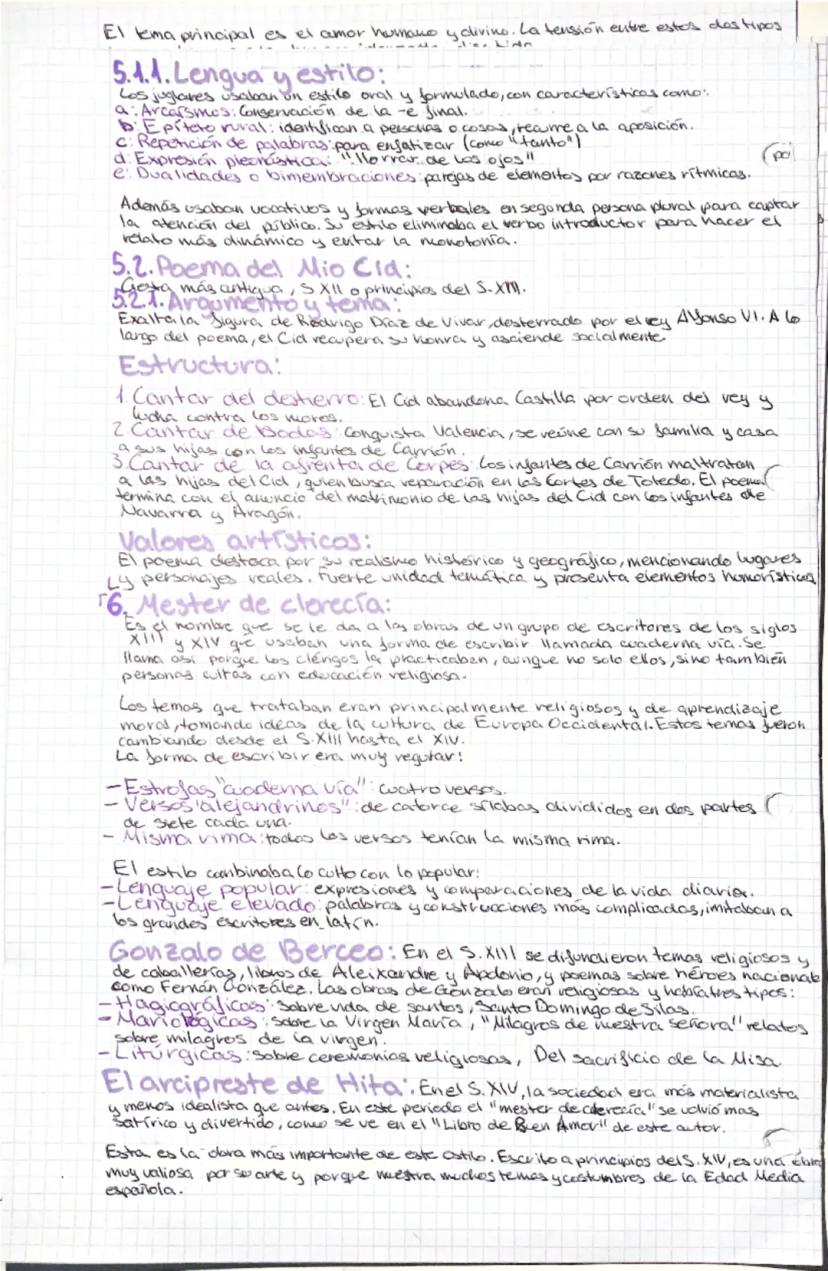 El tema principal es el amor humano y divino. La tensión entre estos dos tipos
5.1.1. Lengua y estilo:
Los juglares usaban un estilo oral y formulado, con características como:
a: Arcaísmos: Conservación de la -e final.
b: Epíteto rural: identifican a personas o cosas, recurre a la aposición.
c: Repetición de palabras: para enfatizar (como "tanto")
d: Expresión pleonástica: "llorrar de los ojos"
e: Dualidades o bimembraciones: parejas de elementos por razones rítmicas.
Además usaban vocativos y formas verbales en segunda persona plural para captar
la atención del público. Su estilo eliminaba el verbo introductor para hacer el
relato más dinámico y evitar la monotonía.
5.2. Poema del Mio Cid:
Gesta más antigua, S XII o principios del S. XIII.
5.2.1. Argumento y tema:
Exalta la figura de Rodrigo Díaz de Vivar, desterrado por el rey Alfonso VI. A lo
largo del poema, el Cid recupera su honra y asciende socialmente
Estructura:
1. Cantar del destierro: El Cid abandona Castilla por orden del rey y
lucha contra los moros.
2 Cantar de Bodas: Conquista Valencia, se reúne con su familia y casa
a sus hijas con los infantes de Carrión.
3 Cantar de la afrenta de Corpes: Los infantes de Carrión maltratan
a las hijas del Cid, quien busca reparación en las Cortes de Toledo. El poema
termina con el anuncio del matrimonio de las hijas del Cid con los infantes de
Navarra y Aragón.
Valores artísticos:
El poema destaca por su realismo histórico y geográfico, mencionando lugares
y personajes reales. Fuerte unidad temática y presenta elementos humorísticos
6. Mester de clerecía:
Es el nombre que se le da a las obras de un grupo de escritores de los siglos
XIII y XIV que usaban una forma de escribir llamada cuaderna vía. Se
llama así porque los clérigos la practicaban, aunque no solo ellos, sino también
personas cultas con educación religiosa.
Los temas que trataban eran principalmente religiosos y de aprendizaje
moral, tomando ideas de la cultura de Europa Occidental. Estos temas fueron
cambiando desde el S. XIII hasta el XIV.
La forma de escribir era muy regular:
- Estrofas "cuaderna vía": cuatro versos.
- Versos "alejandrinos": de catorce sílabas divididos en dos partes
de siete cada una.
- Misma rima: todos los versos tenían la misma rima.
El estilo combinaba lo culto con lo popular:
- Lenguaje popular: expresiones y comparaciones de la vida diaria.
- Lenguaje elevado: palabras y construcciones más complicadas, imitaban a
los grandes escritores en latín.
Gonzalo de Berceo: En el S. XIII se difundieron temas religiosos y
de caballerías, libros de Aleixandre y Apolonio, y poemas sobre héroes nacionales
como Fernán González. Las obras de Gonzalo eran religiosas y había tres tipos:
- Hagiográficas: sobre vida de santos, Santo Domingo de Silas.
- Mariológicas: sobre la Virgen María, "Milagros de nuestra señora" relatos
sobre milagros de la virgen.
- Litúrgicas: sobre ceremonias religiosas, Del sacrificio de la Misa.
El arcipreste de Hita: En el S. XIV, la sociedad era más materialista
y menos idealista que antes. En este periodo el "mester de clerecía" se volvió mas
satírico y divertido, como se ve en el "Libro de Buen Amor" de este autor.
Esta es la obra más importante de este estilo. Escrito a principios del S. XIV, es una obra
muy valiosa por su arte y porque muestra muchos temas y costumbres de la Edad Media
española.